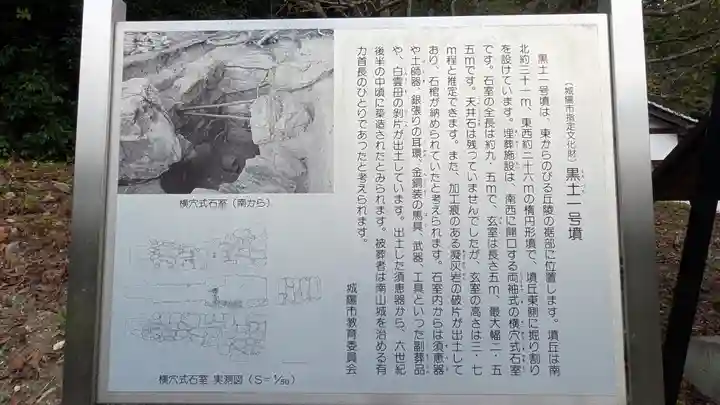 (城陽市指定文化財) 黒土一号墳
黒土一号墳は、東からのびる丘陵の裾部に位置します。墳丘は南
北約三十一m、東西約二十六mの楕円形墳で、墳丘東側に掘り割り
を設けています。埋葬施設は、南西に開口する両袖式の横穴式石室
です。石室の全長は約九・五mで、玄室は長さ五m、最大幅二・五
五mです。天井石は残っていませんでしたが、玄室の高さは三・七
m程と推定できます。また、加工痕のある凝灰岩の破片が出土して
おり、石棺が納められていたと考えられます。石室内からは須恵器
や土師器、銀張りの耳環、金銅装の馬具、武器、工具といった副葬品
や、白雲母の剥片が出土しています。出土した須恵器から、六世紀
後半の中頃に築造されたとみられます。被葬者は南山城を治める有
力首長のひとりであったと考えられます。
城陽市教育委員会
横穴式石室(南から)
横穴式石室 実測図(S=1/50)